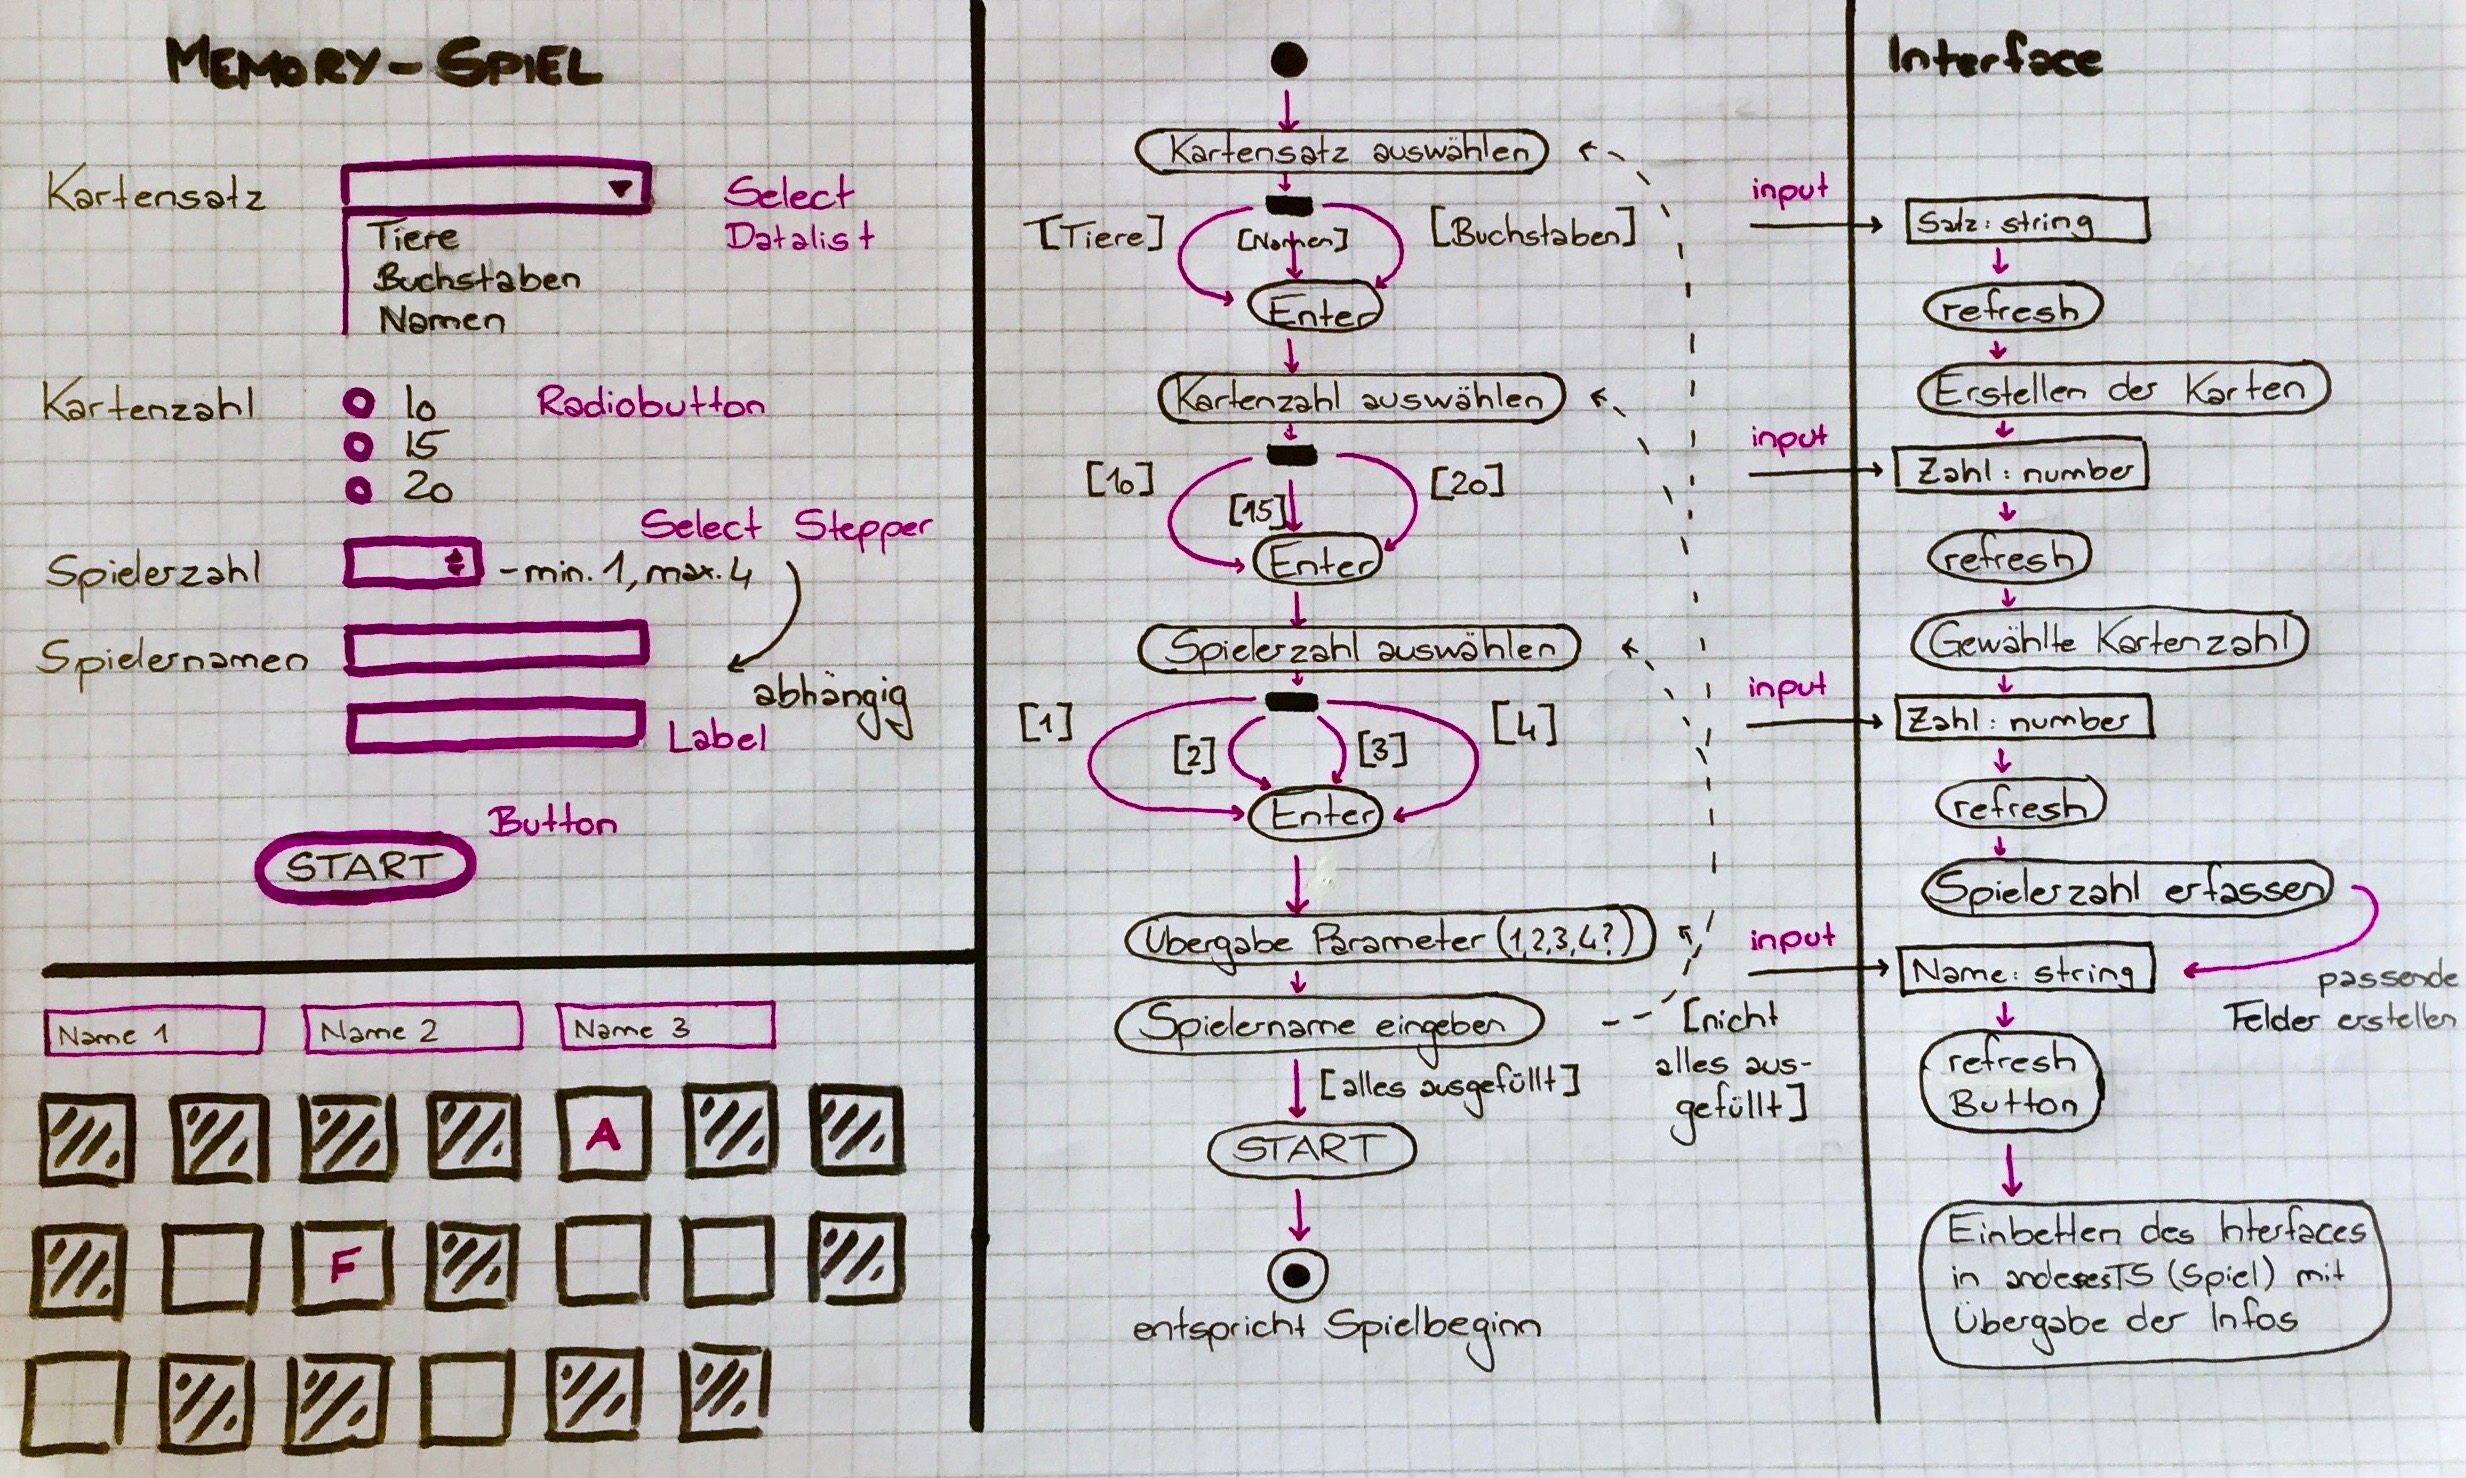 MEMORY-SPIEL
Kartensatz
Select
Datalist
Tiere
Buchstaben
Namen
Kartenzahl
10
15
20
Radiobutton
Select Stepper
Spielerzahl
-min. 1, max. 4
Spielernamen
abhängig
Label
Button
START
Name 1
Name 2
Name 3
A
F
Kartensatz auswählen
[Tiere]
[Namen]
[Buchstaben]
Enter
Kartenzahl auswählen
[10]
[15]
[20]
Enter
Spielerzahl auswählen
[1]
[2]
[3]
[4]
Enter
Übergabe Parameter (1,2,3,4?)
Spielername eingeben
[nicht
alles aus-
gefüllt]
[alles ausgefüllt]
START
entspricht Spielbeginn
Interface
input
Satz: string
refresh
Erstellen der Karten
input
Zahl: number
refresh
Gewählte Kartenzahl
input
Zahl: number
refresh
Spielerzahl erfassen
input
Name: string
passende
Felder erstellen
refresh
Button
Einbetten des Interfaces
in anderes TS (Spiel) mit
Übergabe der Infos